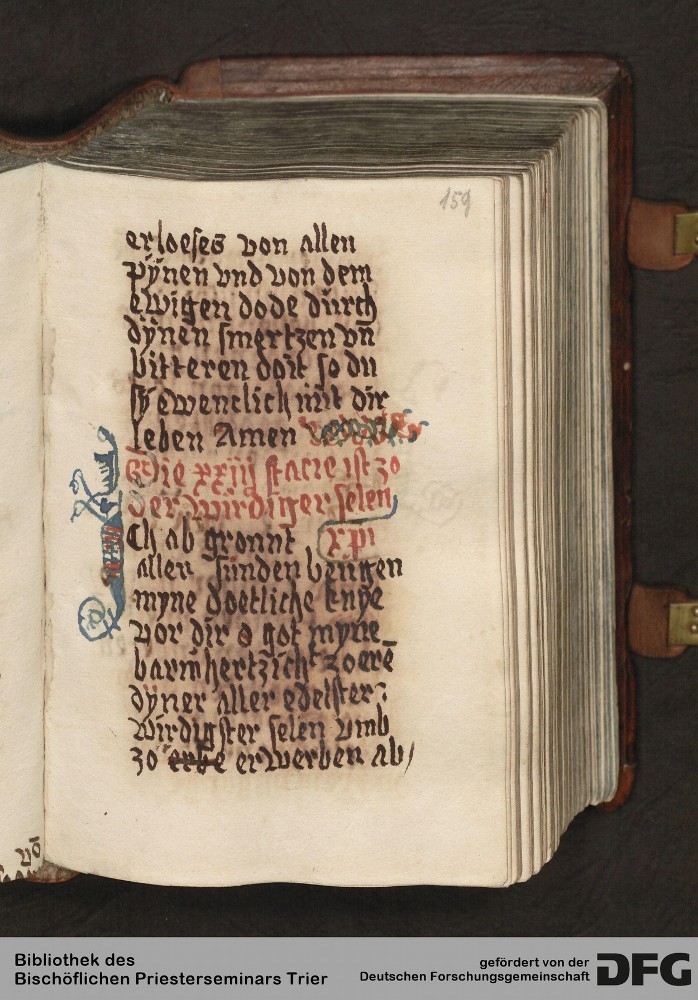 159
erloeses von allen
pÿnen vnd von dem
ewigen dode durch
dÿnen smertzen vn̄
bitteren doit so du
ewenclich mit dir
leben Amen
Die xxiij stacie ist zo
der wirdiger selen
Ch ab gronnt xpi
aller sunden bengen
myne doetliche knÿe
vor dir o got myne
barmhertzicht zo erē
dÿner aller edelster
wirdigster selen vmb
zo erbe erwerben ab
vō
Bibliothek des
Bischöflichen Priesterseminars Trier
gefördert von der
Deutschen Forschungsgemeinschaft
DFG